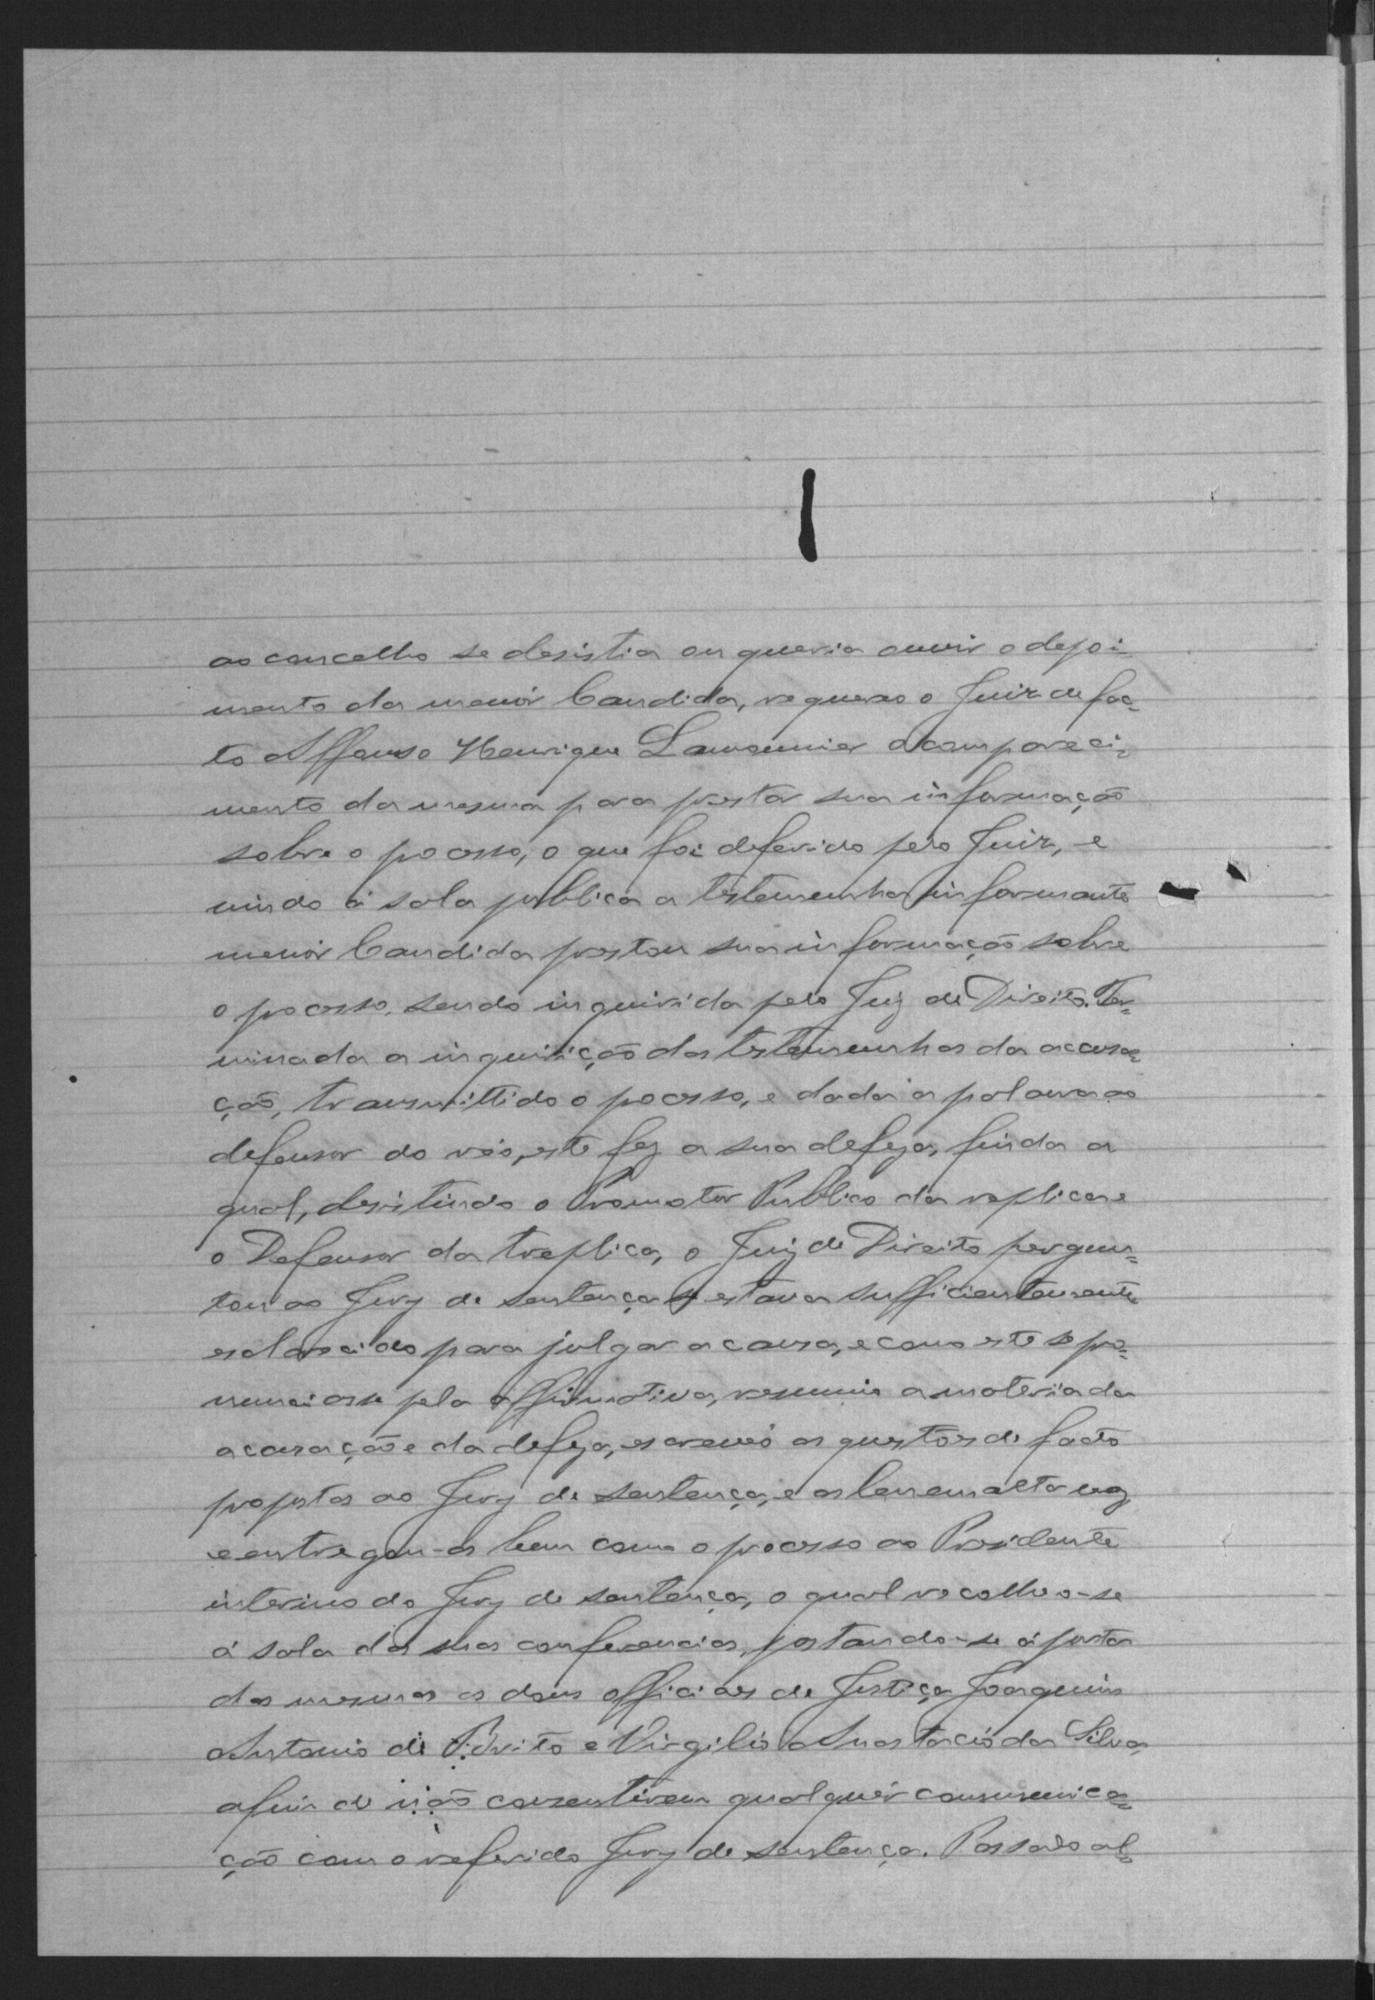 ao concelho se desistia ou queria ouvir o depoi-
mento da menór Candida, requereo o Juiz de fac-
to Affonso Henrique Lamounier o compareci-
mento da mesma para prestar sua informação
sobre o pocesso, o que foi deferido pelo Juiz, e
vindo á sala publica a testemunha informante
menór Candida prestou sua informação sobre
o pocesso, sendo inquirida pelo Juiz de Direito. Ter-
minada a inquirição das testemunhas da accusa-
ção, transmittido o pocesso, e dada a palavra ao
defensor do réo, este fez a sua defeza, finda a
qual, desistindo o Promotor Publico da replica e
o Defensor da treplica, o Juiz de Direito pergun-
tou ao Jury de sentença se estava sufficientemente
esclarecido para julgar a causa, e como este se pro-
nunciasse pela affirmativa, resumio a materia da
acusação e da defeza, escreveó as questões de facto
propostas ao Jury de sentença, e as leu em alta voz
e entregou-as bem como o processo ao Presidente
interino do Jury de sentença, o qual recolheo-se
á sala das suas conferencias, postando-se á porta
das mesmas os dous officiaes de Justiça Joaquim
Antonio de Brito e Virgilio Anastacio da Silva,
afim de não consentirem qualquér communica-
ção com o referido Jury de sentença. Passado al-